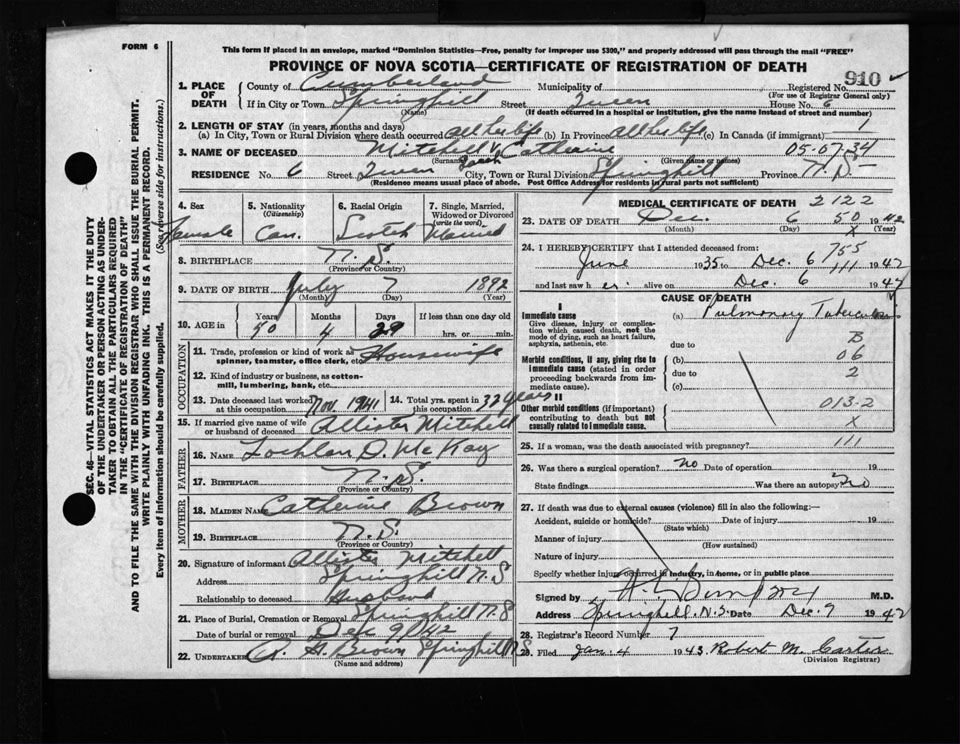 FORM 6
This form if placed in an envelope, marked "Dominion Statistics—Free, penalty for improper use $300," and properly addressed will pass through the mail "FREE"
PROVINCE OF NOVA SCOTIA—CERTIFICATE OF REGISTRATION OF DEATH
910
1. PLACE OF DEATH
County of Cumberland Municipality of Registered No.
(For use of Registrar General only)
If in City or Town Springhill Street Queen House No. 6
(Name) (If death occurred in a hospital or institution, give the name instead of street and number)
2. LENGTH OF STAY (in years, months and days)
(a) In City, Town or Rural Division where death occurred all her life (b) In Province all her life (c) In Canada (if immigrant)
3. NAME OF DECEASED Mitchell Catherine 05-07-34
(Surname) (Given name or names)
RESIDENCE No. 6 Street Queen City, Town or Rural Division Springhill Province N.S.
(Residence means usual place of abode. Post Office Address for residents in rural parts not sufficient)
4. Sex Female
5. Nationality (Citizenship) Can.
6. Racial Origin Scotch
7. Single, Married, Widowed or Divorced (write the word) Married
8. BIRTHPLACE N.S.
(Province or Country)
9. DATE OF BIRTH July 7 1892
(Month) (Day) (Year)
10. AGE in Years Months Days If less than one day old
50 4 29 hrs. or min.
OCCUPATION
11. Trade, profession or kind of work as spinner, teamster, office clerk, etc. Housewife
12. Kind of industry or business, as cotton-mill, lumbering, bank, etc.
13. Date deceased last worked at this occupation Nov. 1941
14. Total yrs. spent in this occupation 32 years
15. If married give name of wife or husband of deceased Allister Mitchell
FATHER
16. NAME Lochlan D. McKay
17. BIRTHPLACE N.S.
(Province or Country)
MOTHER
18. MAIDEN NAME Catherine Brown
19. BIRTHPLACE N.S.
(Province or Country)
20. Signature of informant Allister Mitchell
Address Springhill N.S
Relationship to deceased Husband
21. Place of Burial, Cremation or Removal Springhill N.S
Date of burial or removal Dec 9/1942
22. UNDERTAKER A. H. Brown Springhill N.S
(Name and address)
MEDICAL CERTIFICATE OF DEATH 2122
23. DATE OF DEATH Dec. 6 50 1942
(Month) (Day) X (Year)
24. I HEREBY CERTIFY that I attended deceased from: 755
June 1935 to Dec. 6 111 1942
and last saw her alive on Dec. 6 1942
CAUSE OF DEATH
I
Immediate cause
Give disease, injury or complication which caused death, not the mode of dying, such as heart failure, asphyxia, asthenia, etc.
(a) Pulmonary Tuberculosis
due to B
Morbid conditions, if any, giving rise to immediate cause (stated in order proceeding backwards from immediate cause).
(b) 06
due to 2
(c)
II
Other morbid conditions (if important) contributing to death but not causally related to immediate cause.
013-2
X
25. If a woman, was the death associated with pregnancy? 111
26. Was there a surgical operation? no Date of operation 19
State findings Was there an autopsy? no
27. If death was due to external causes (violence) fill in also the following:—
Accident, suicide or homicide? Date of injury 19
(State which)
Manner of injury
(How sustained)
Nature of injury
Specify whether injury occurred in industry, in home, or in public place
Signed by M.D.
Address Springhill, N.S. Date Dec. 9 1942
28. Registrar's Record Number 7
29. Filed Jan. 4 1943 Robert M. Carter
(Division Registrar)
SEC. 46—VITAL STATISTICS ACT MAKES IT THE DUTY
OF THE UNDERTAKER OR PERSON ACTING AS UNDERTAKER TO OBTAIN ALL THE PARTICULARS REQUIRED
IN THE "CERTIFICATE OF REGISTRATION OF DEATH" AND TO FILE THE SAME WITH THE DIVISION REGISTRAR WHO SHALL ISSUE THE BURIAL PERMIT.
WRITE PLAINLY WITH UNFADING INK. THIS IS A PERMANENT RECORD.
Every item of Information should be carefully supplied. (See reverse side for instructions.)